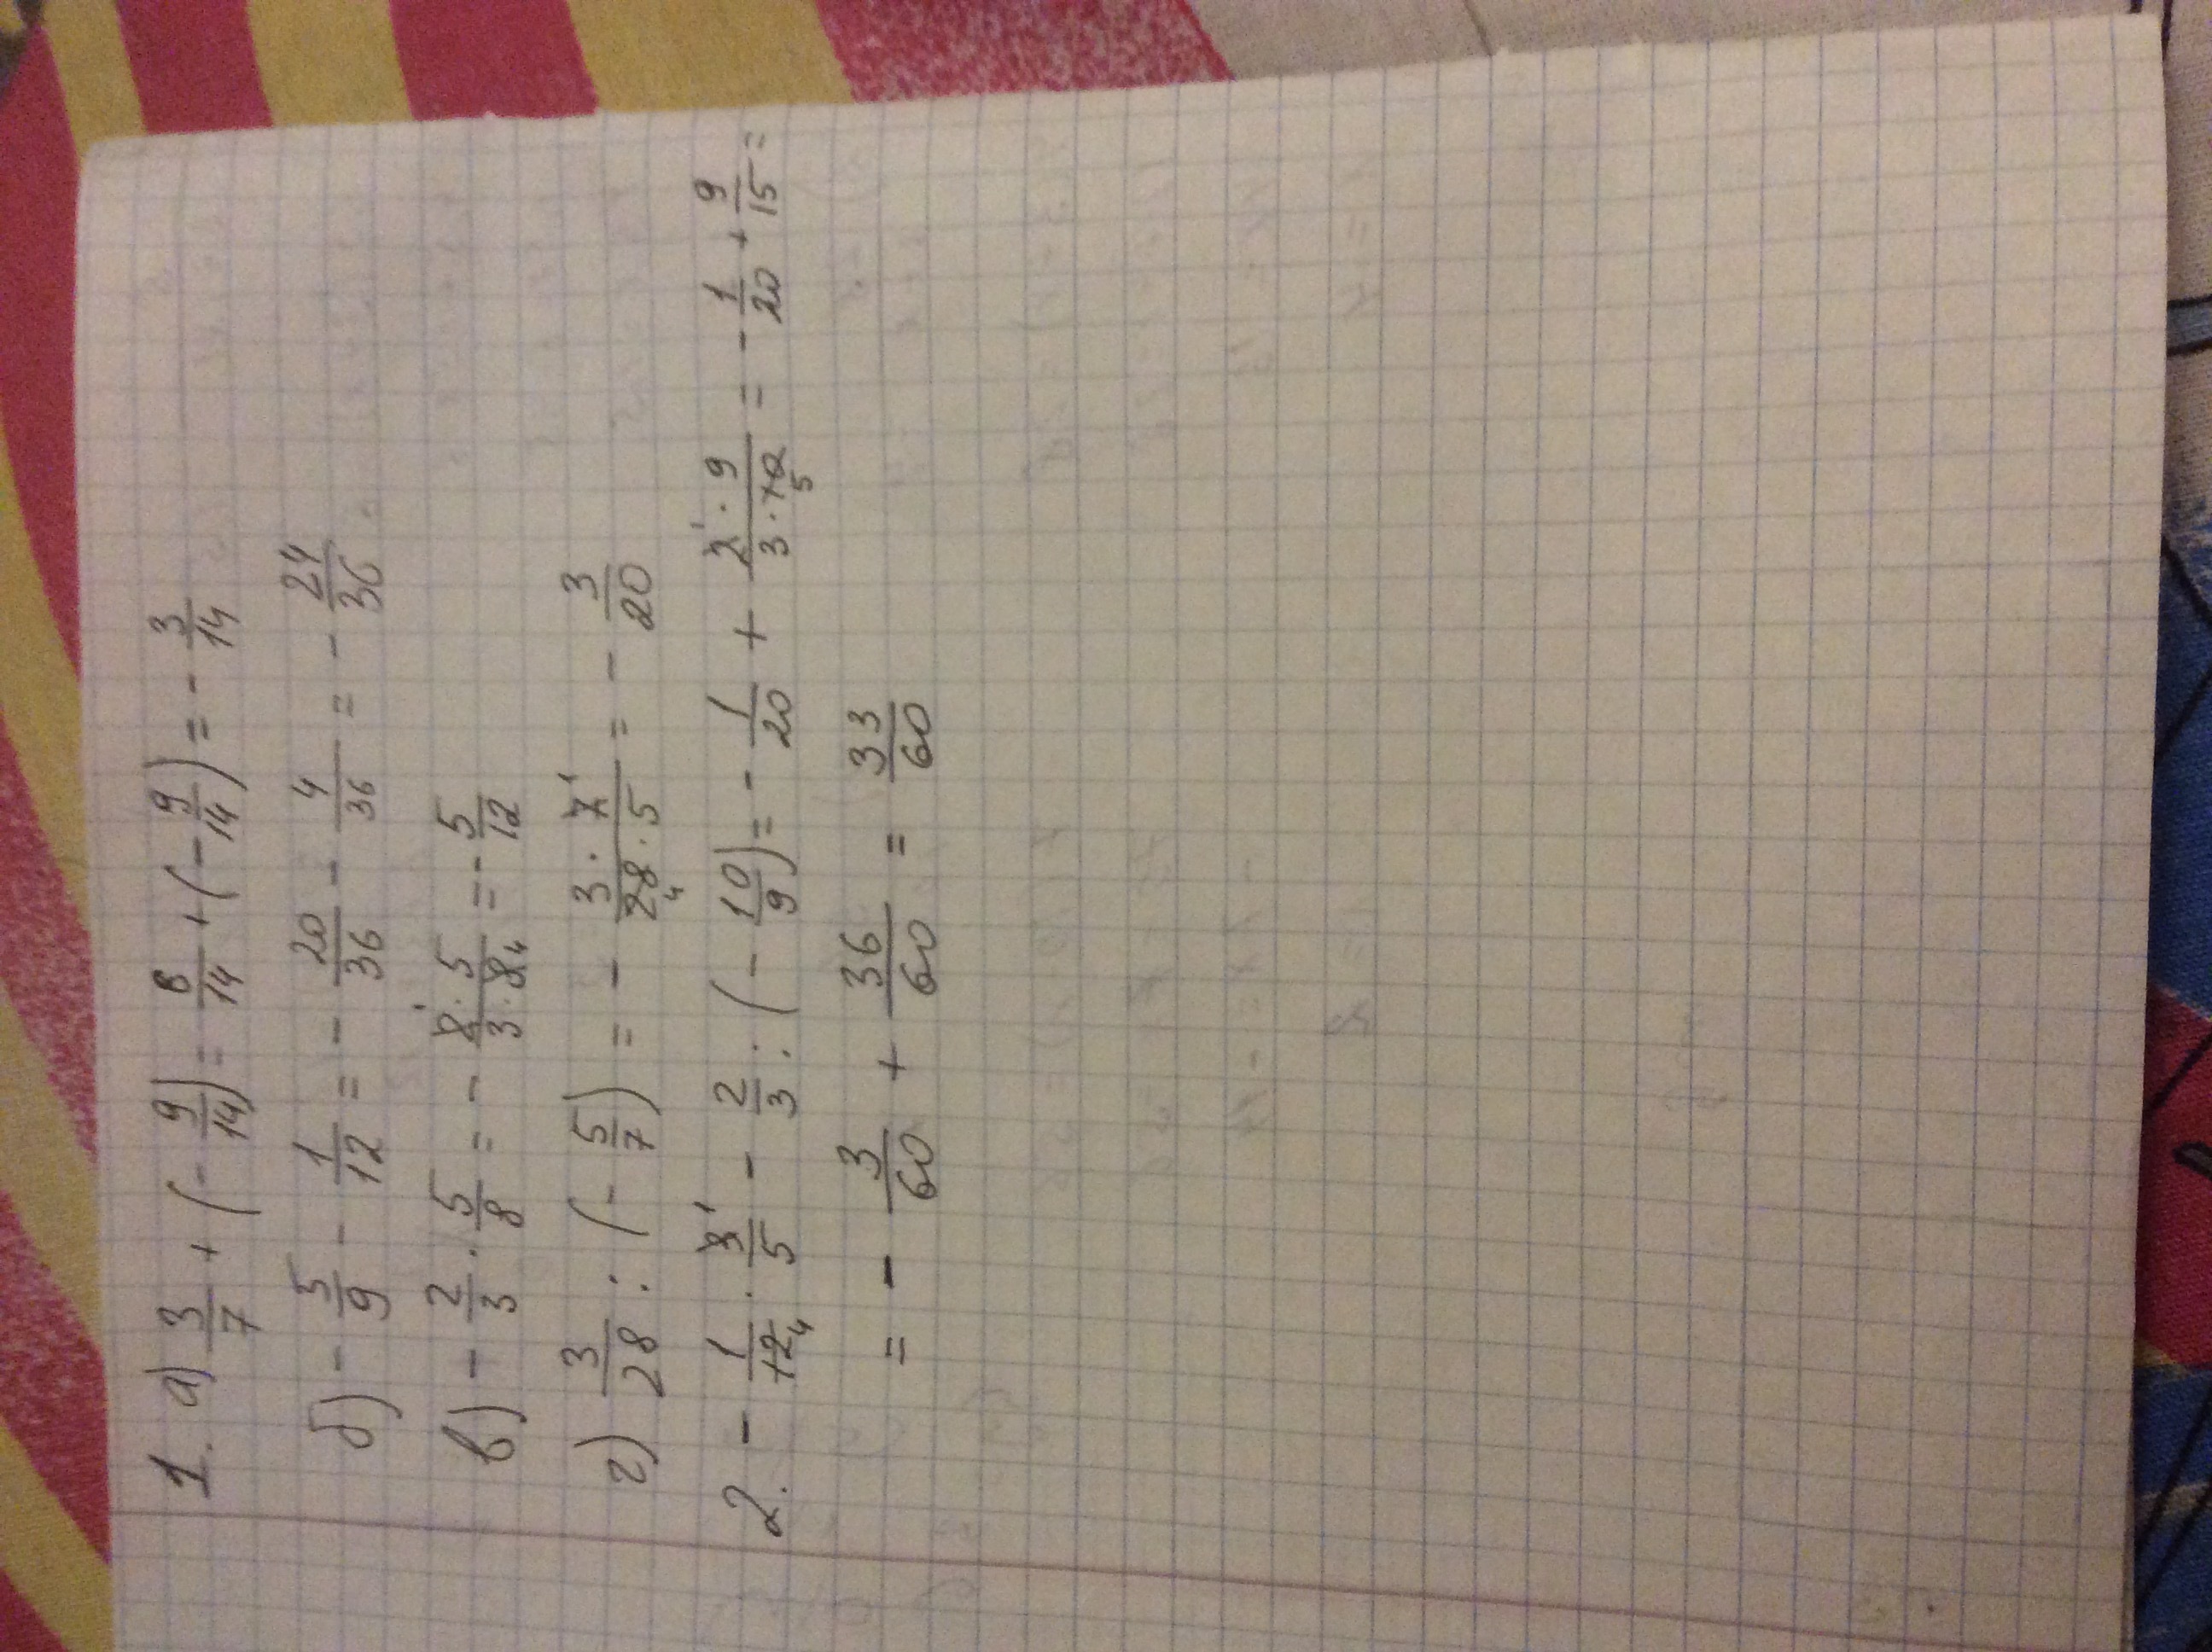 1. а) 3/7 + (- 9/14) = 6/14 + (- 9/14) = - 3/14
б) - 5/9 - 1/12 = - 20/36 - 4/36 = - 24/36.
в) - 2/3 · 5/8 = - 2 1 · 5/3 · 8 4 = - 5/12
г) 3/28 : (- 5/7) = - 3 · 7 1/28 4 · 5 = - 3/20
2. - 1/12 4 · 3 1/5 - 2/3 : (- 10/9) = - 1/20 + 2 1 · 9/3 · 10 5 = - 1/20 + 9/15 =
= - 3/60 + 36/60 = 33/60